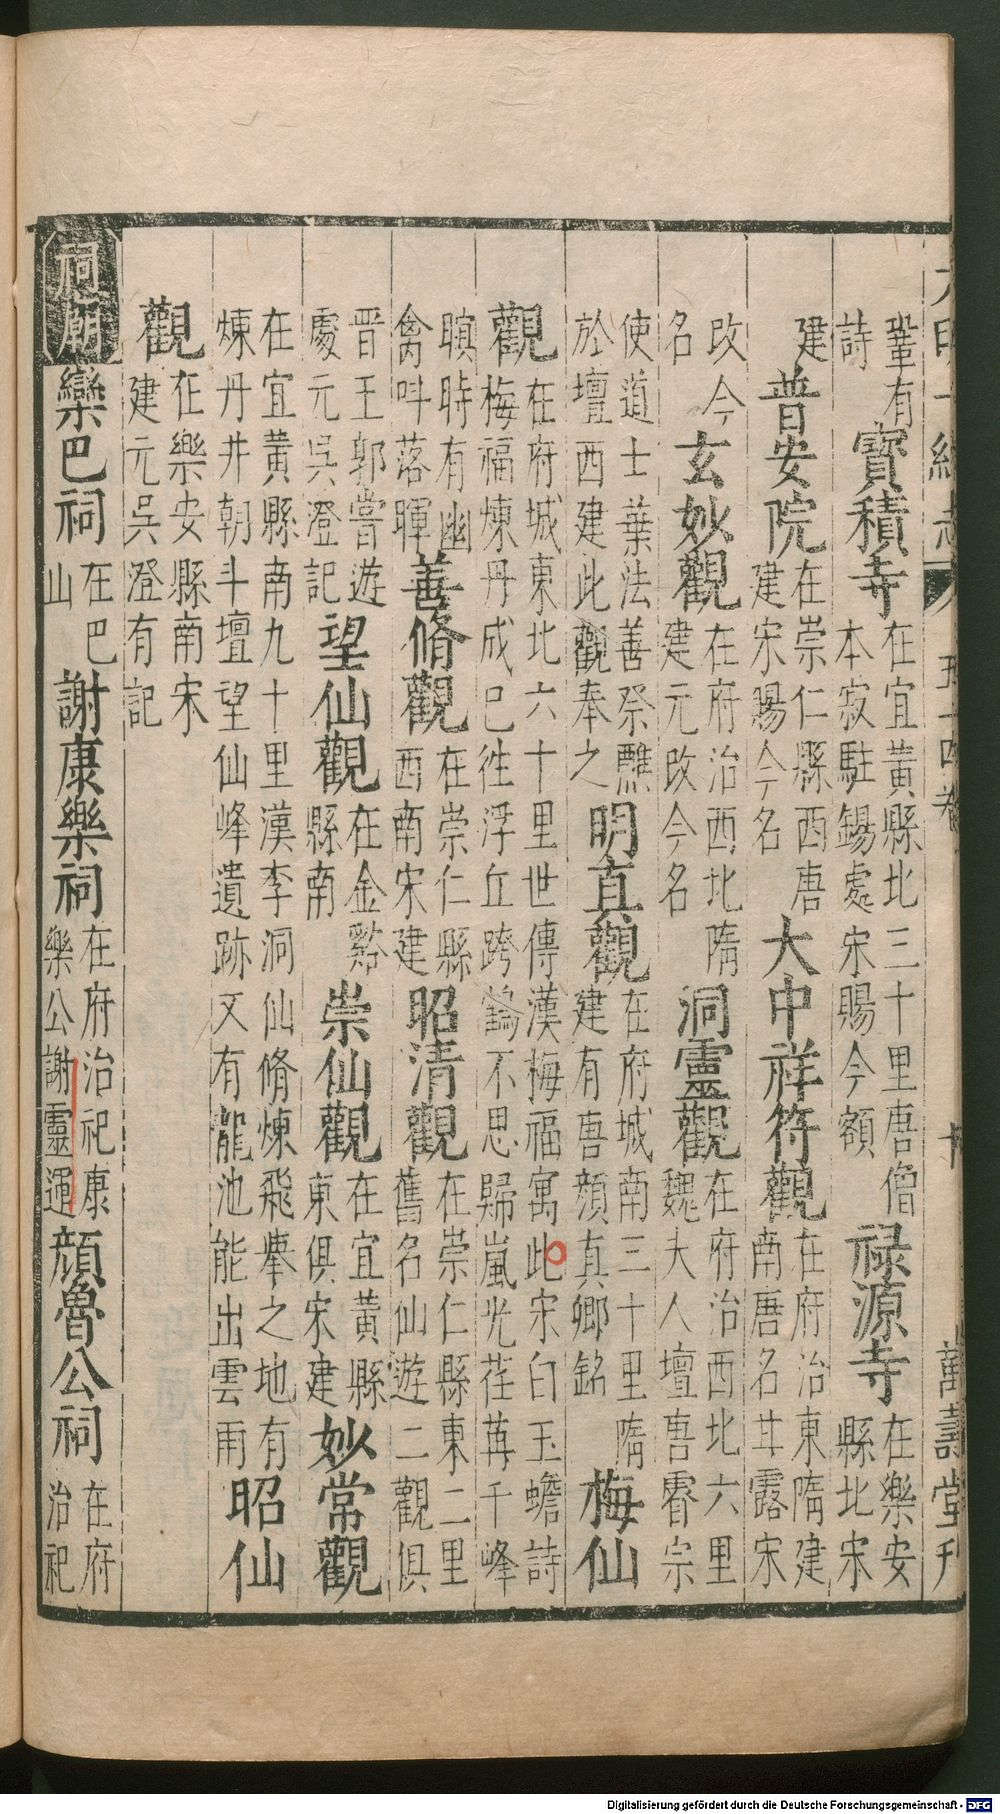 大明一統志 五十四卷 十 萬壽堂刋
鞏有詩 寳積寺 在宜黃縣北三十里唐僧本寂駐錫處宋賜今額 禄源寺 在樂安縣北宋
建 普安院 在崇仁縣西唐建宋賜今名 大中祥符觀 在府治東隋建南唐名甘露宋
改今名 玄妙觀 在府治西北隋建元改今名 洞靈觀 在府治西北六里魏夫人壇唐睿宗
使道士葉法善祭醮於壇西建此觀奉之 明真觀 在府城南三十里隋建有唐顔真卿銘 梅仙
觀 在府城東北六十里世傳漢梅福寓此宋白玉蟾詩梅福煉丹成巳徃浮丘跨鶴不思歸嵐光荏苒千峰
暝時有幽禽呌落暉 善脩觀 在崇仁縣西南宋建 昭清觀 在崇仁縣東二里舊名仙遊二觀俱
晋王郭嘗遊處元吳澄記 望仙觀 在金谿縣南 崇仙觀 在宜黃縣東俱宋建 妙常觀
在宜黃縣南九十里漢李洞仙脩煉飛擧之地有煉丹井朝斗壇望仙峰遺跡又有龍池能出雲雨 昭仙
觀 在樂安縣南宋建元吳澄有記
祠廟 欒巴祠 在巴山 謝康樂祠 在府治祀康樂公謝靈運 顔魯公祠 在府治祀
Digitalisierung gefördert durch die Deutsche Forschungsgemeinschaft - DFG